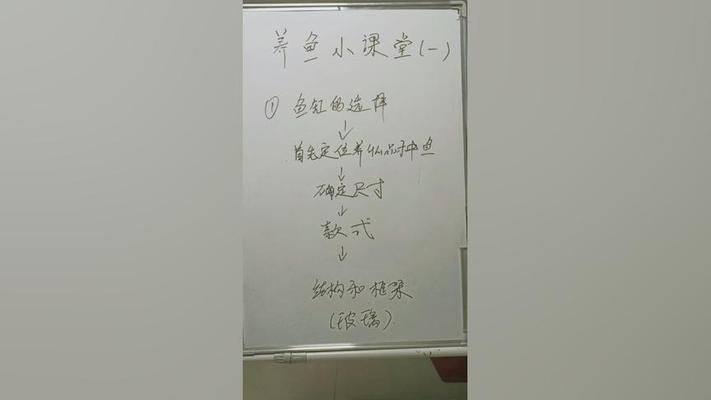 养鱼小课堂(一)
① 鱼缸的选择
↓
首先定位养什么品种鱼
↓
确定尺寸
↓
款式
↓
结构和框架
(玻璃)